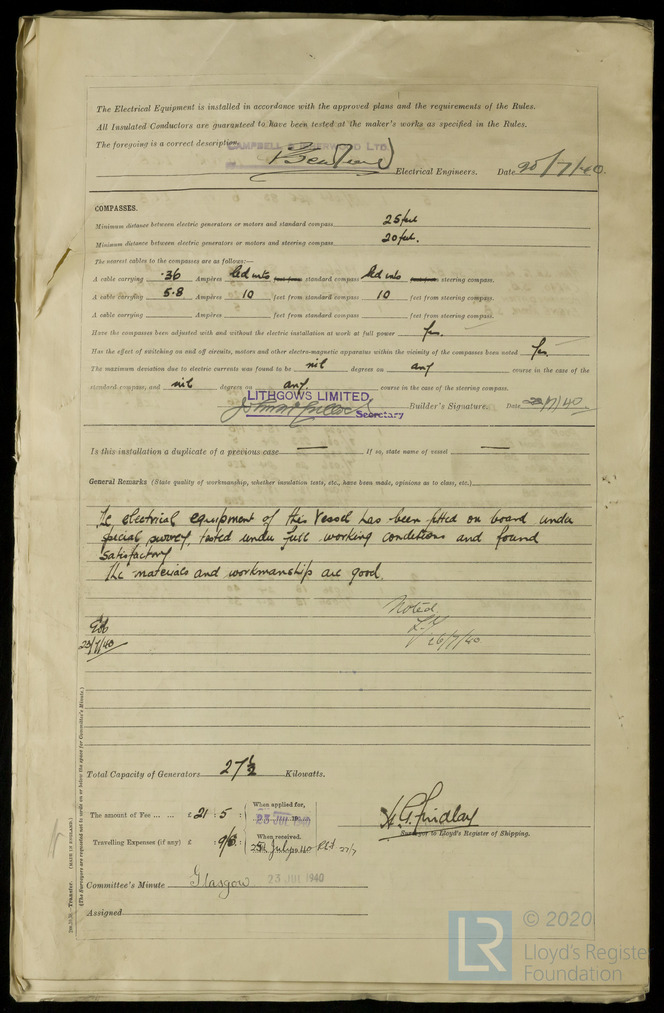 The Electrical Equipment is installed in accordance with the approved plans and the requirements of the Rules.
All Insulated Conductors are guaranteed to have been tested at the maker's works as specified in the Rules.
The foregoing is a correct description.
CAMPBELL & ISHERWOOD LTD.
Electrical Engineers. Date 20/7/40.
COMPASSES.
Minimum distance between electric generators or motors and standard compass 25 feet
Minimum distance between electric generators or motors and steering compass 20 feet.
The nearest cables to the compasses are as follows:—
A cable carrying .36 Ampères led into feet from standard compass led into feet from steering compass.
A cable carrying 5.8 Ampères 10 feet from standard compass 10 feet from steering compass.
A cable carrying Ampères feet from standard compass feet from steering compass.
Have the compasses been adjusted with and without the electric installation at work at full power Yes.
Has the effect of switching on and off circuits, motors and other electro-magnetic apparatus within the vicinity of the compasses been noted Yes.
The maximum deviation due to electric currents was found to be nil degrees on any course in the case of the
standard compass, and nil degrees on any course in the case of the steering compass.
LITHGOWS LIMITED.
Secretary
Builder's Signature. Date /7/40
Is this installation a duplicate of a previous case — If so, state name of vessel —
General Remarks (State quality of workmanship, whether insulation tests, etc., have been made, opinions as to class, etc.)
The electrical equipment of this Vessel has been fitted on board under
special survey, tested under full working conditions and found
satisfactory
The materials and workmanship are good.
Noted
26/7/40
23/7/40
(The Surveyors are requested not to write on or below the space for Committee's Minute.)
Total Capacity of Generators 27½ Kilowatts.
The amount of Fee ... ... £ 21 : 5 :
When applied for,
23 JUL 1940
Travelling Expenses (if any) £ : 9/3 :
When received,
July 1940
H. G. Findlay
Surveyor to Lloyd's Register of Shipping.
Committee's Minute Glasgow 23 JUL 1940
Assigned
Transfer. (MADE IN ENGLAND.)
LR
© 2020
Lloyd's Register
Foundation